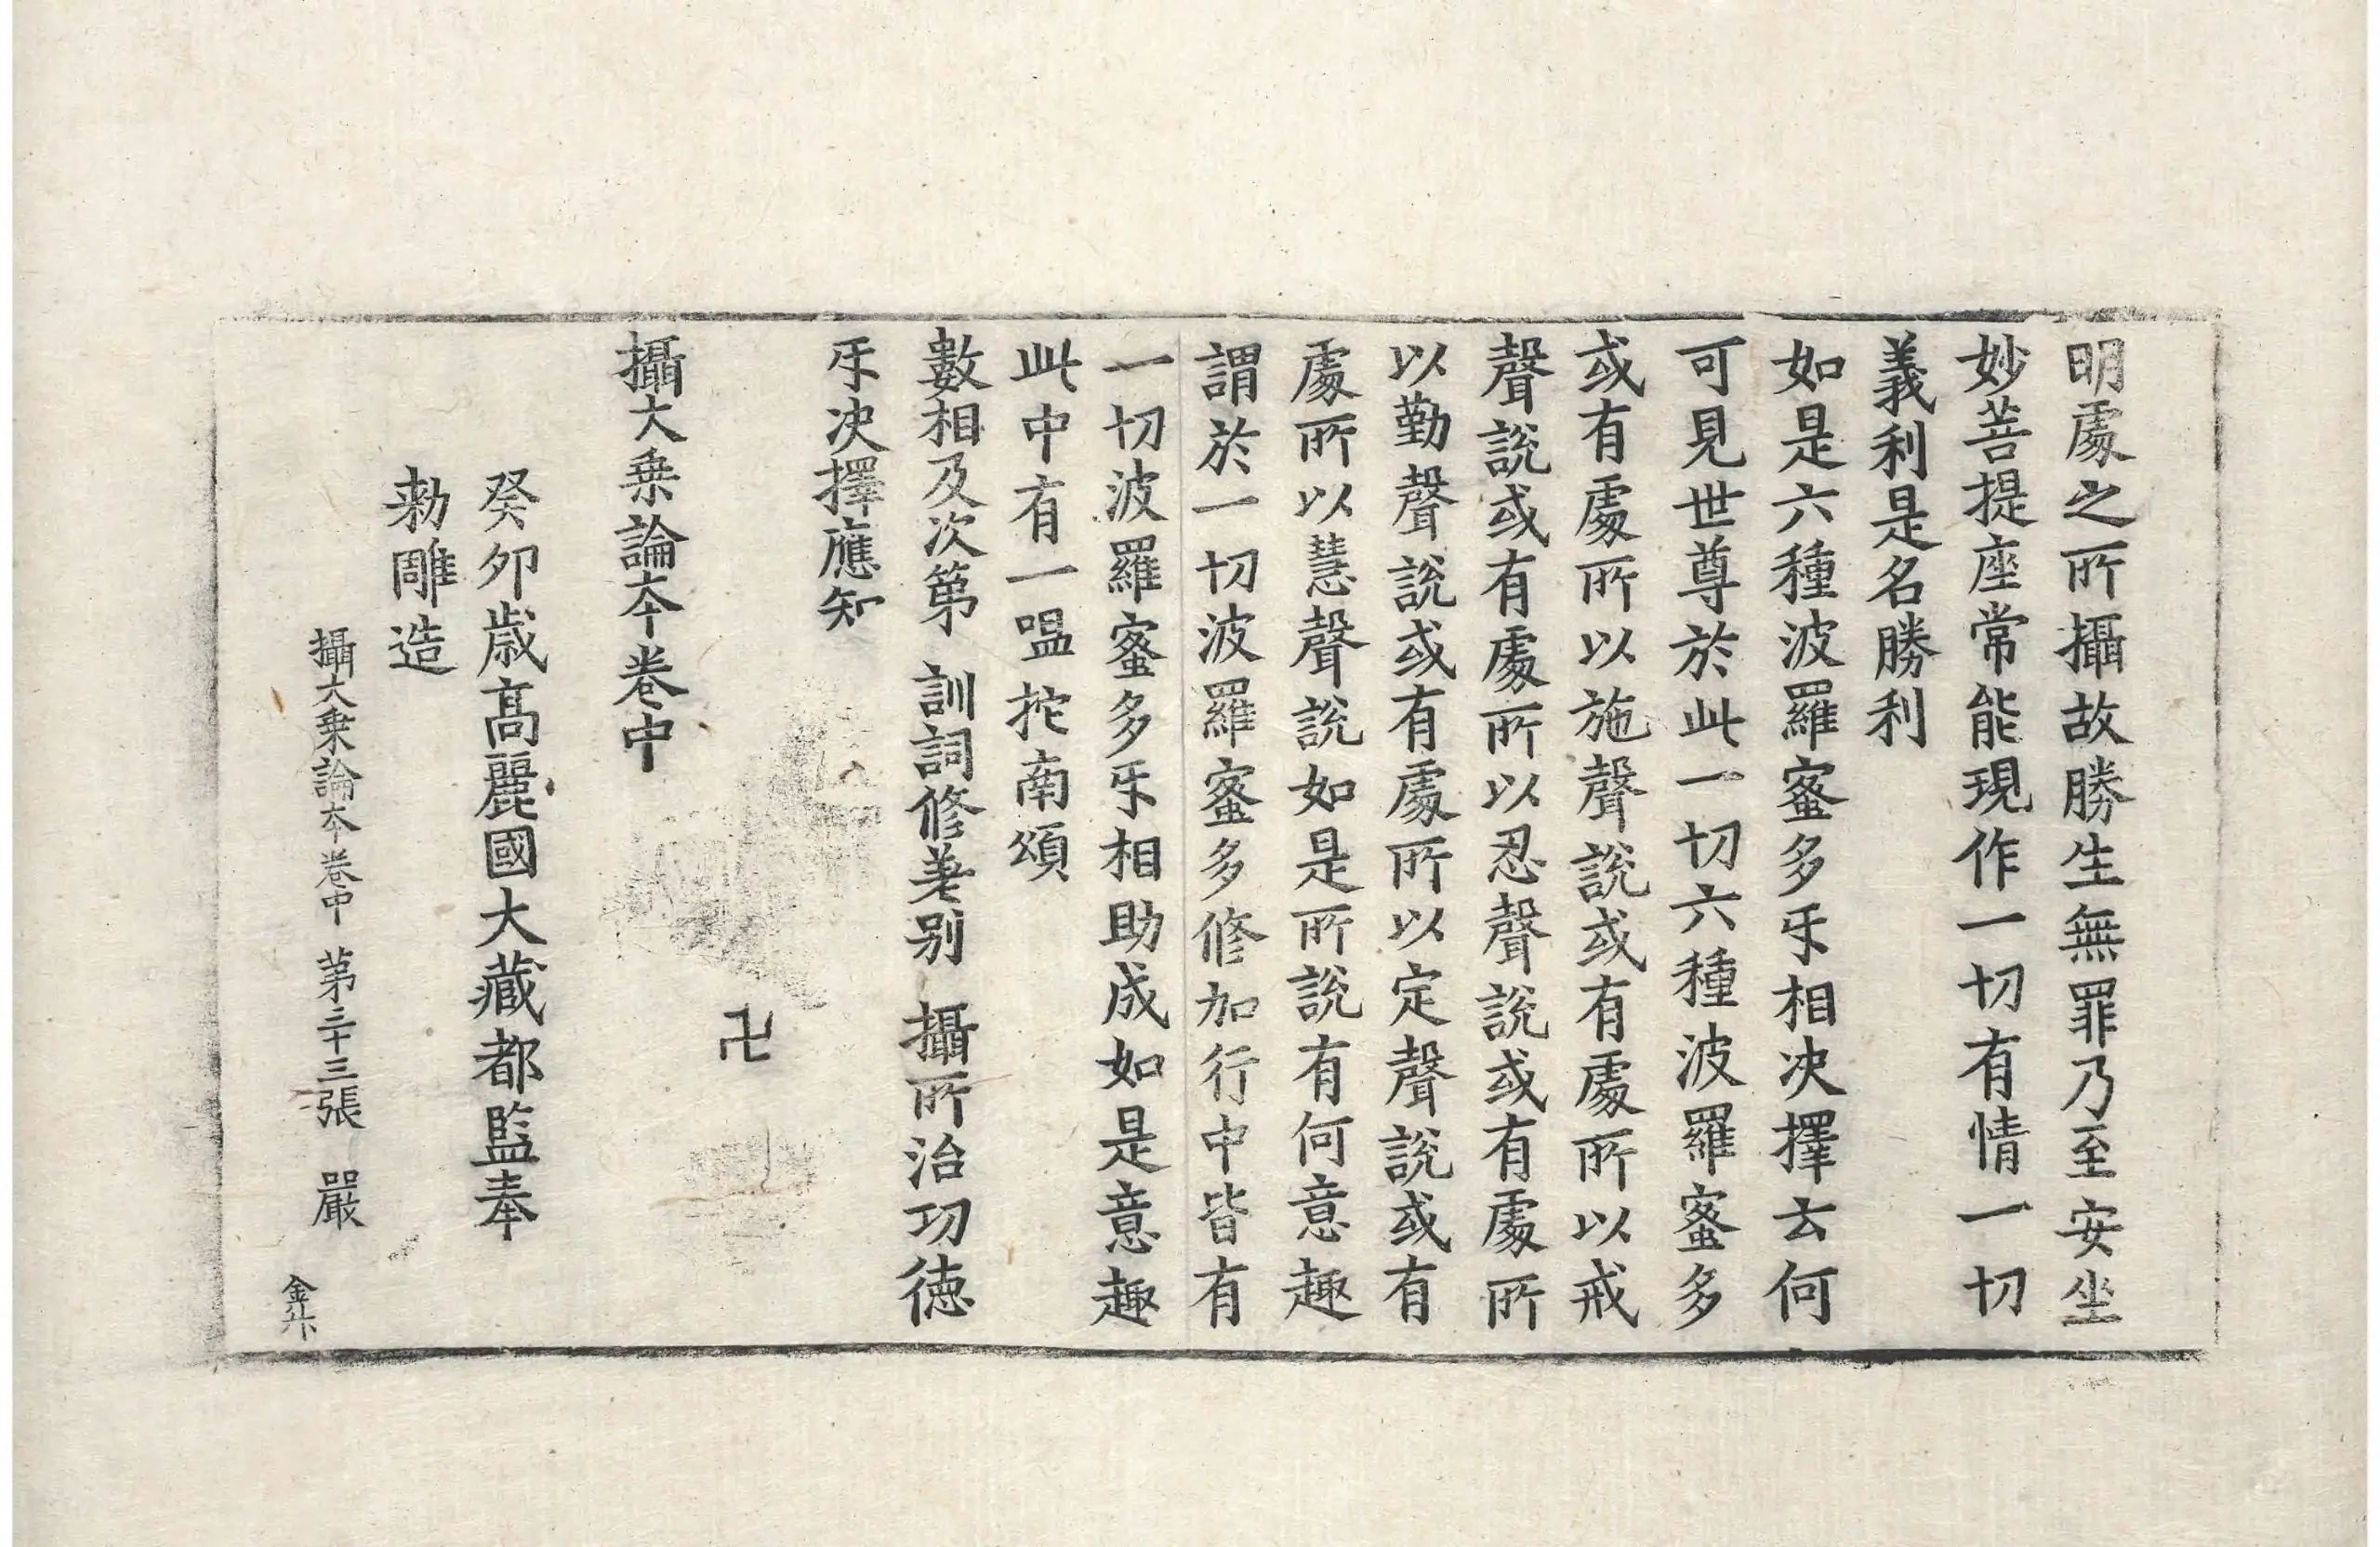 明處之所攝故勝生無罪乃至安坐
妙菩提座常能現作一切有情一切
義利是名勝利
如是六種波羅蜜多㸦相决擇云何
可見世尊於此一切六種波羅蜜多
或有處所以施聲說或有處所以戒
聲說或有處所以忍聲說或有處所
以勤聲說或有處所以定聲說或有
處所以慧聲說如是所說有何意趣
謂於一切波羅蜜多修加行中皆有
一切波羅蜜多㸦相助成如是意趣
此中有一嗢拕南頌
數相及次第 訓詞修差别 攝所治功德
㸦决擇應知
卍
攝大乗論夲卷中
癸夘歳髙麗國大藏都監奉
勅雕造
攝大乗論夲卷中 第二十三張 嚴
金升